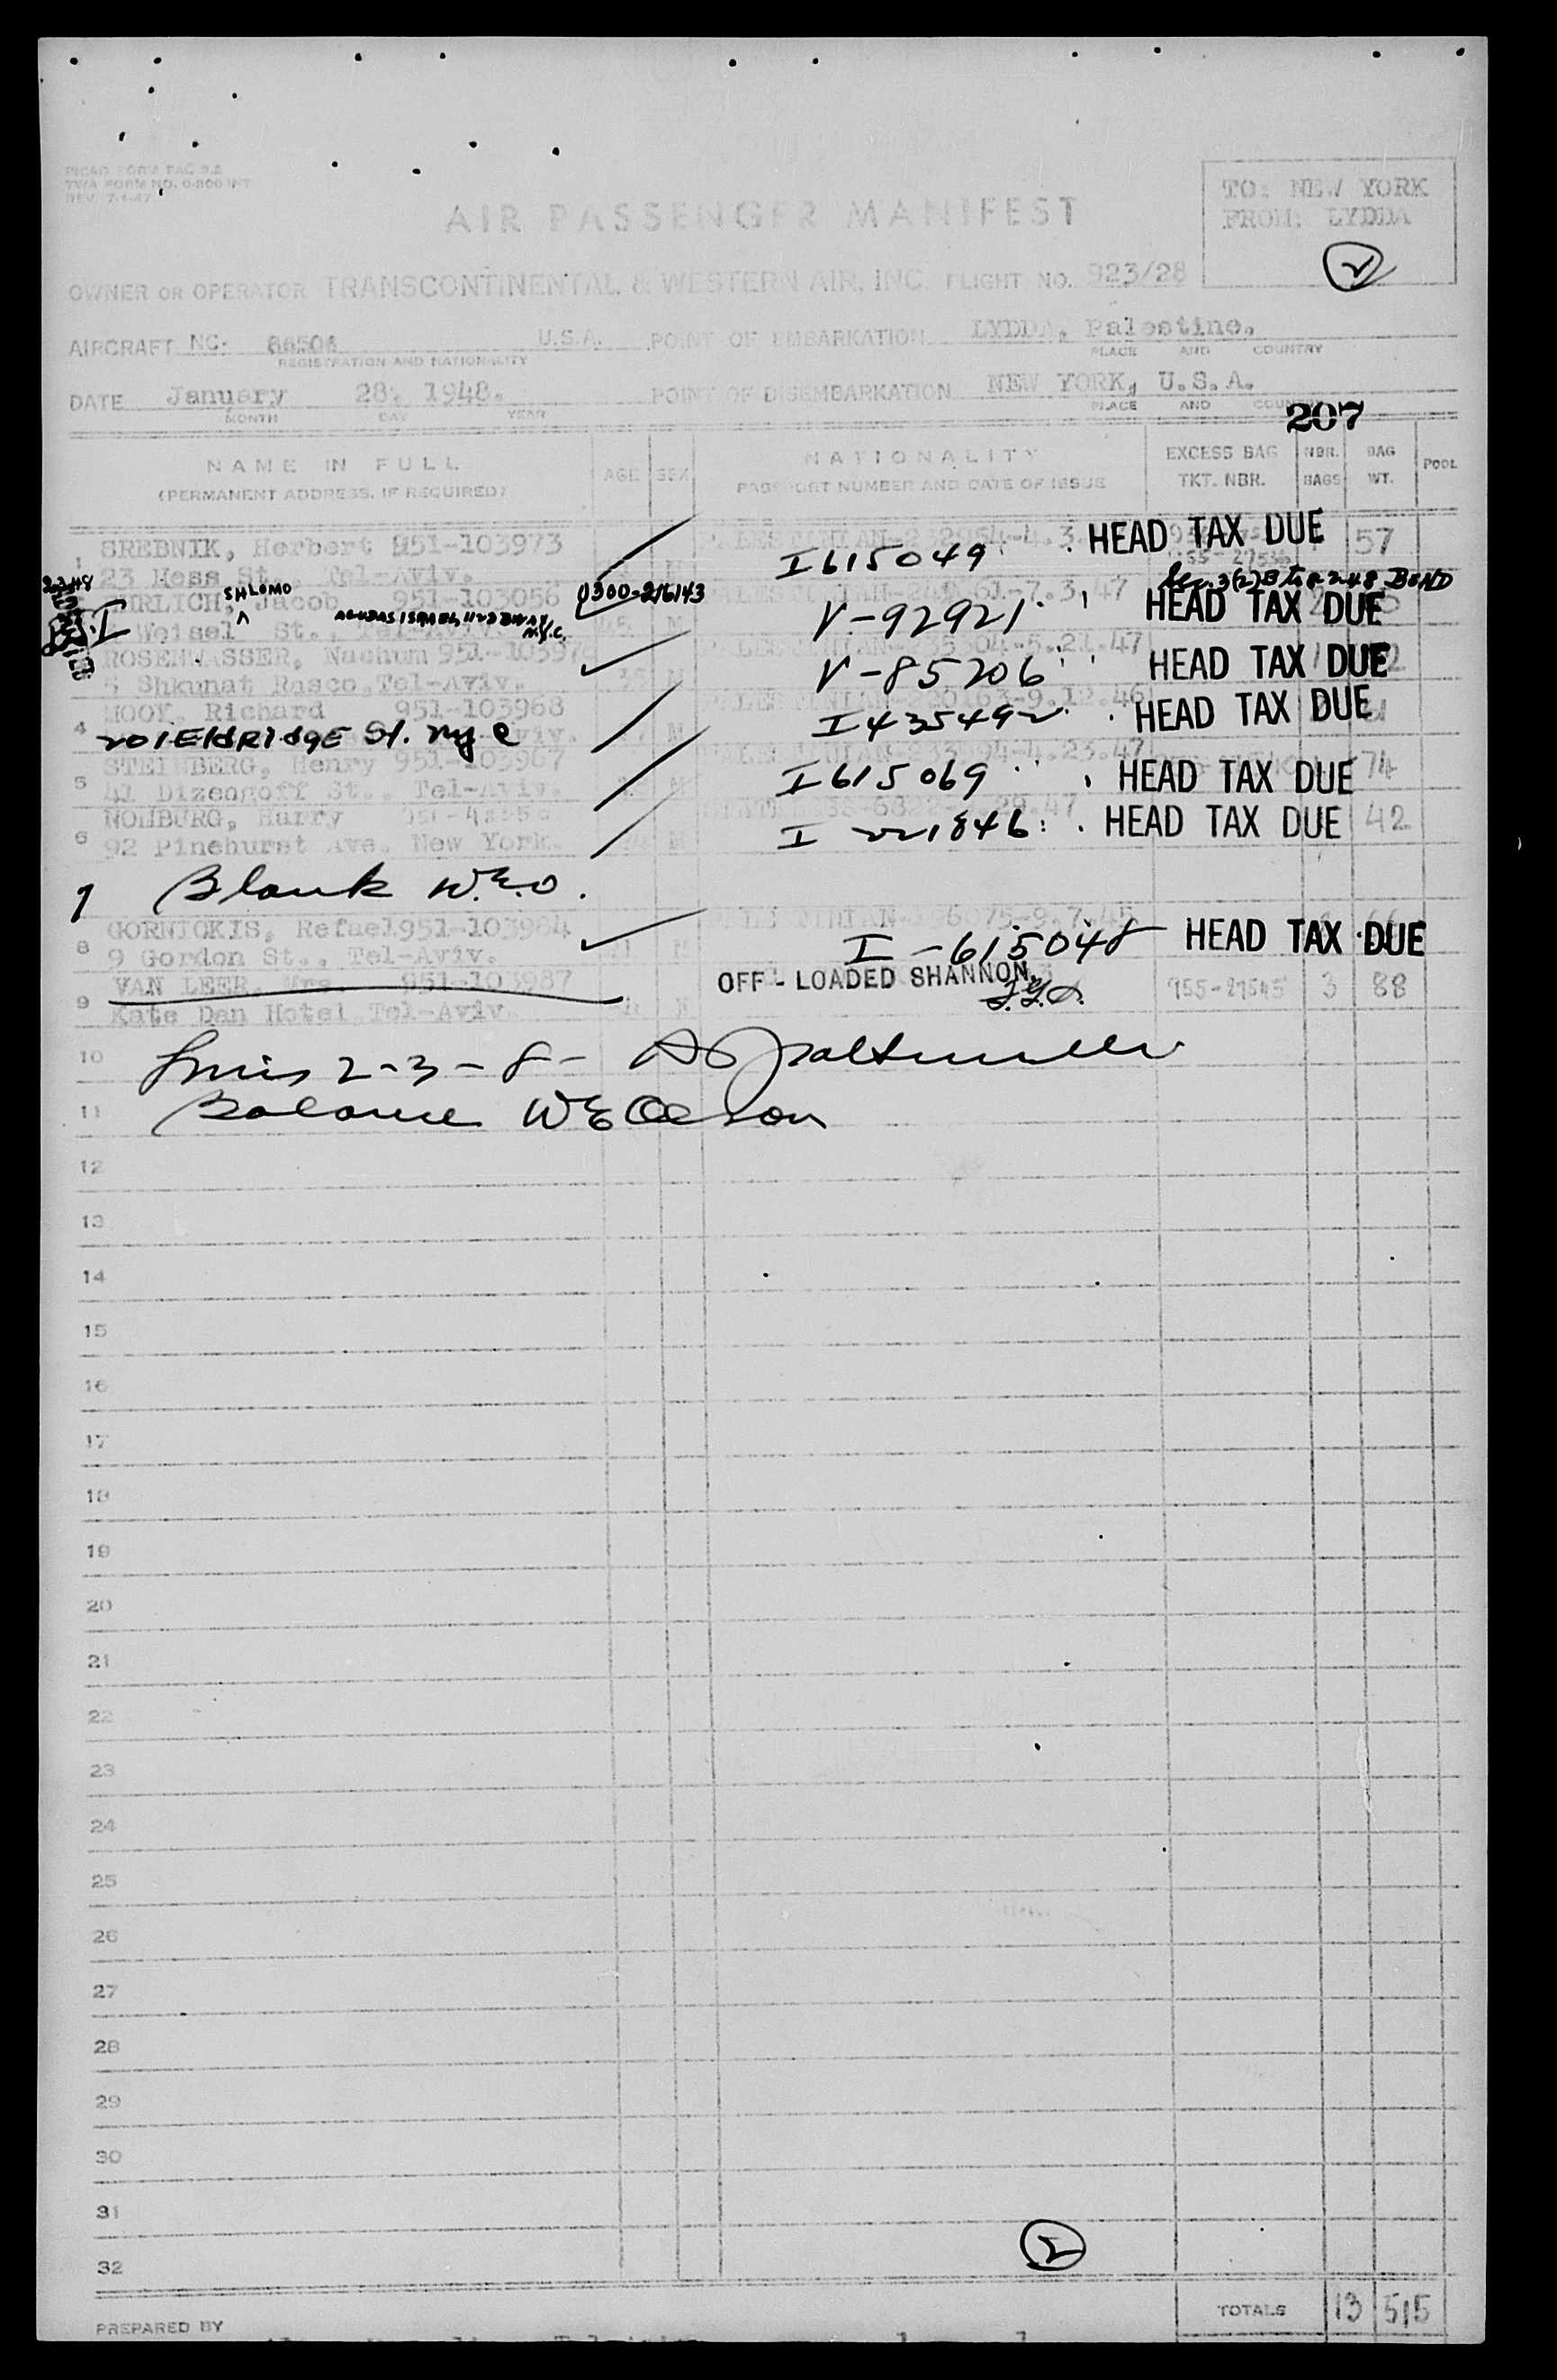 PICAO FORM PAC 9.2
TWA FORM NO. 0-800 INT
REV. 7-1-47
AIR PASSENGER MANIFEST
TO: NEW YORK
FROM: LYDDA
2
OWNER OR OPERATOR TRANSCONTINENTAL & WESTERN AIR, INC. FLIGHT NO. 923/28
AIRCRAFT NC. 86504 U.S.A. POINT OF EMBARKATION LYDDA, Palestine.
REGISTRATION AND NATIONALITY PLACE AND COUNTRY
DATE January 28. 1948. POINT OF DISEMBARKATION NEW YORK, U.S.A.
MONTH DAY YEAR PLACE AND COUNTRY
207
NAME IN FULL AGE SEX NATIONALITY EXCESS BAG NBR. BAG POOL
(PERMANENT ADDRESS, IF REQUIRED) PASSPORT NUMBER AND DATE OF ISSUE TKT. NBR. BAGS WT.
1 SREBNIK, Herbert 951-103973 I 615049 HEAD TAX DUE 57
23 Hess St., Tel-Aviv.
SHLOMO
EHRLICH, Jacob 951-103056 0300-216143 7.3.47 BOND
Weisel St., Tel-Aviv. AGUDAS ISRAEL 1123 BWAY N.Y.C. M V-92921 HEAD TAX DUE
ROSENWASSER, Nachum 951-10397 5.21.47
5 Shkunat Rasco, Tel-Aviv. M V-85206 HEAD TAX DUE
MOOK, Richard 951-103968 9.12.46
4 201 ELDRIDGE St. NYC M I 435492 HEAD TAX DUE
STEINBERG, Henry 951-103967 4.23.47
5 41 Dizengoff St., Tel-Aviv. M I 615069 HEAD TAX DUE 74
NOMBURG, Harry
6 92 Pinehurst Ave. New York. M I 221846 HEAD TAX DUE 42
7 Blank W.E.O.
GORNICKIS, Refael 951-103984 9.7.45
8 9 Gordon St., Tel-Aviv. M I-615048 HEAD TAX DUE
VAN LEER, Mrs. 951-103987 OFF-LOADED SHANNON 955-27545 3 88
9 Kate Dan Hotel Tel-Aviv
10 Lines 2-3-8-
11 Balance W E Olson
12
13
14
15
16
17
18
19
20
21
22
23
24
25
26
27
28
29
30
31
32
2
TOTALS 13 515
PREPARED BY